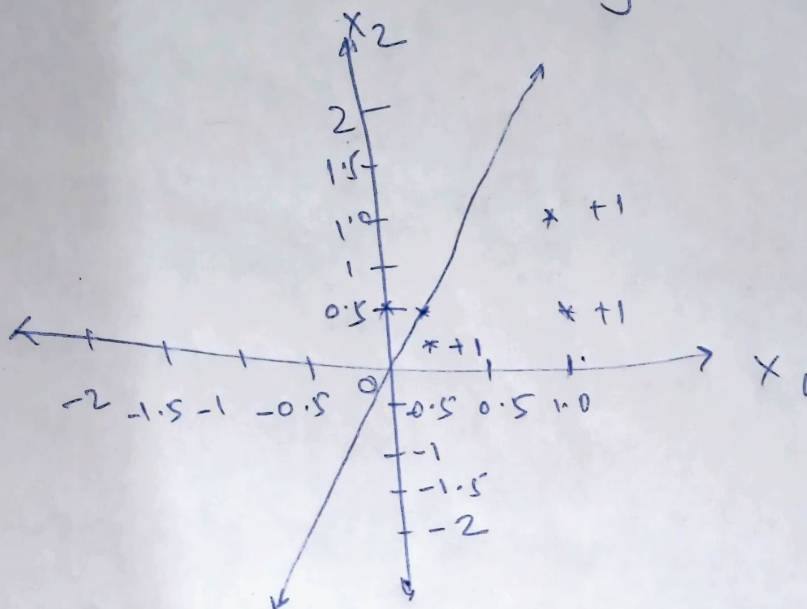 X2
2
1.5
1.0
* +1
1
0.5
* +1
* +1
0
X
-2 -1.5 -1 -0.5
-0.5 0.5 1.0
-1
-1.5
-2